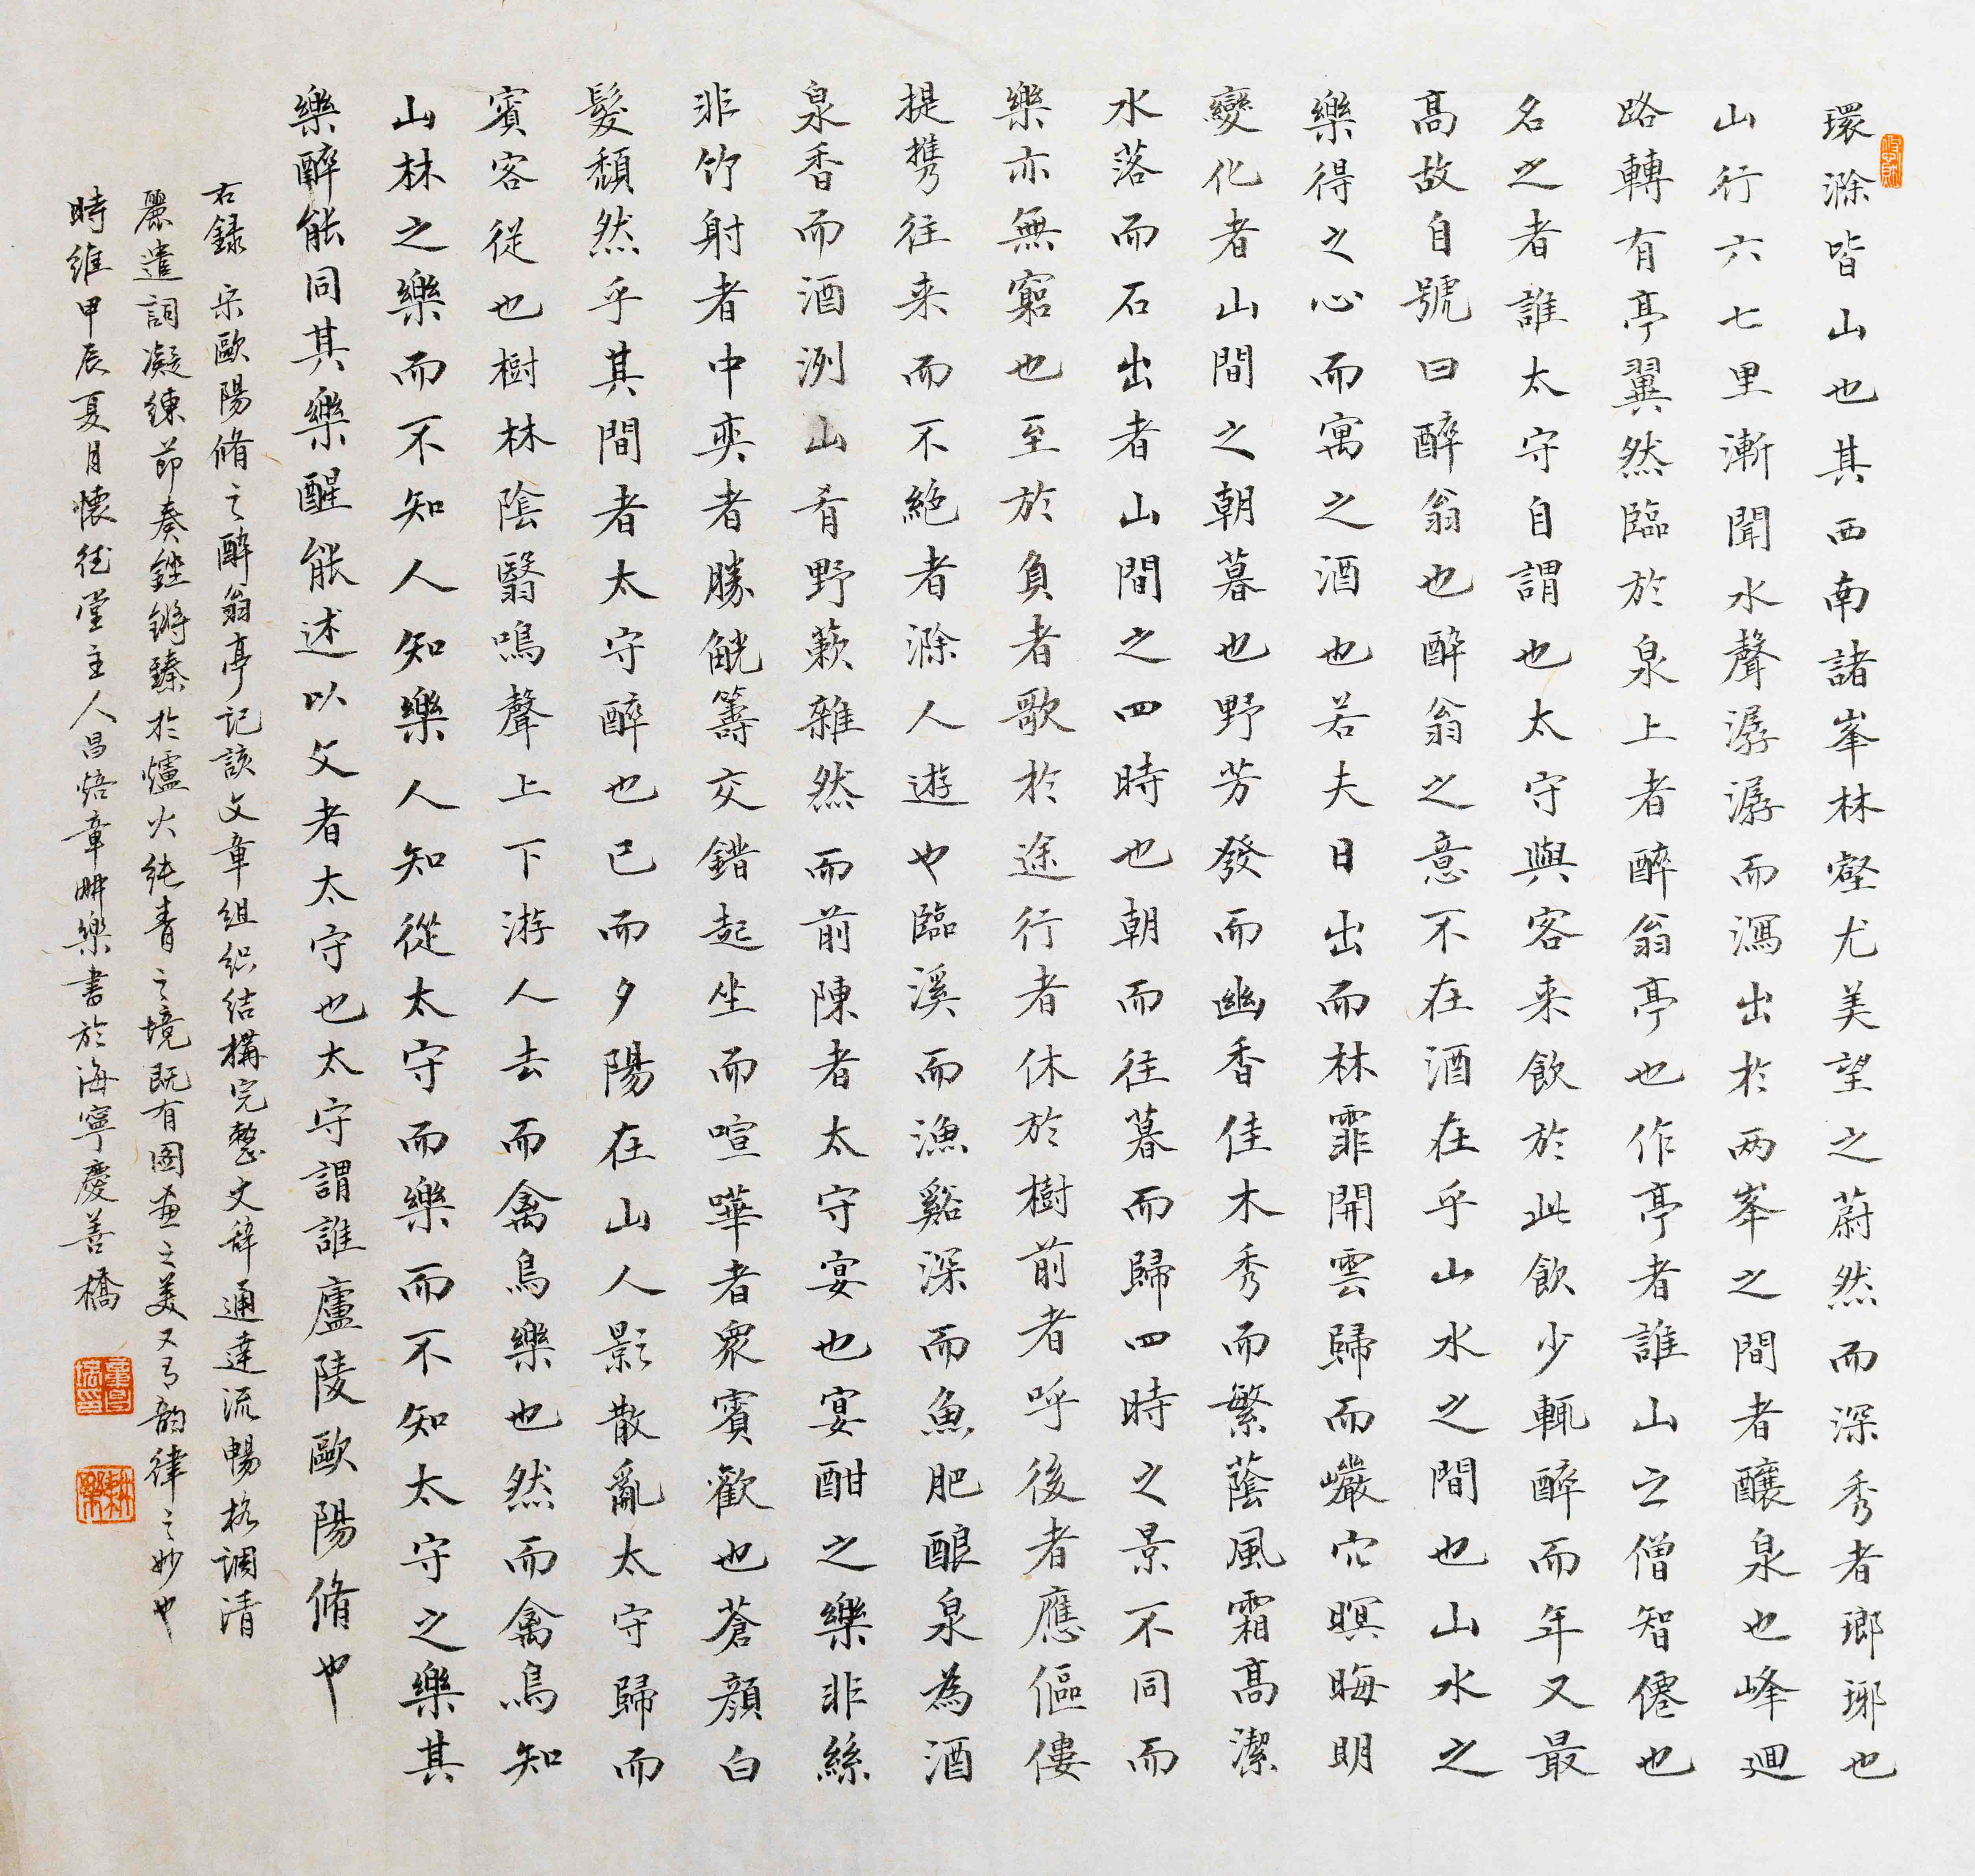 環滁皆山也其西南諸峯林壑尤美望之蔚然而深秀者瑯琊也
山行六七里漸聞水聲潺潺而瀉出於兩峯之間者釀泉也峰迴
路轉有亭翼然臨於泉上者醉翁亭也作亭者誰山之僧智僊也
名之者誰太守自謂也太守與客来飲於此飲少輒醉而年又最
高故自號曰醉翁也醉翁之意不在酒在乎山水之間也山水之
樂得之心而寓之酒也若夫日出而林霏開雲歸而巖穴暝晦明
變化者山間之朝暮也野芳發而幽香佳木秀而繁蔭風霜高潔
水落而石出者山間之四時也朝而往暮而歸四時之景不同而
樂亦無窮也至於負者歌於途行者休於樹前者呼後者應傴僂
提攜往来而不絕者滁人遊也臨溪而漁谿深而魚肥酿泉為酒
泉香而酒洌山肴野蔌雜然而前陳者太守宴也宴酣之樂非絲
非竹射者中奕者勝觥籌交錯起坐而喧嘩者眾賓歡也蒼顏白
髮頹然乎其間者太守醉也已而夕陽在山人影散亂太守歸而
賓客從也樹林陰翳鳴聲上下游人去而禽鳥樂也然而禽鳥知
山林之樂而不知人人知樂人人知從太守而樂而不知太守之樂其
樂醉能同其樂醒能述以文者太守也太守謂誰廬陵歐陽脩也
右録宋歐陽脩之醉翁亭記該文章組织结構完整文辞通達流暢格調清
麗遣詞凝練節奏鏗鏘臻於爐火純青之境既有图画之美又有韵律之妙也
時維甲辰夏月懷德堂主人昌焙章畊樂書於海寧慶善橋